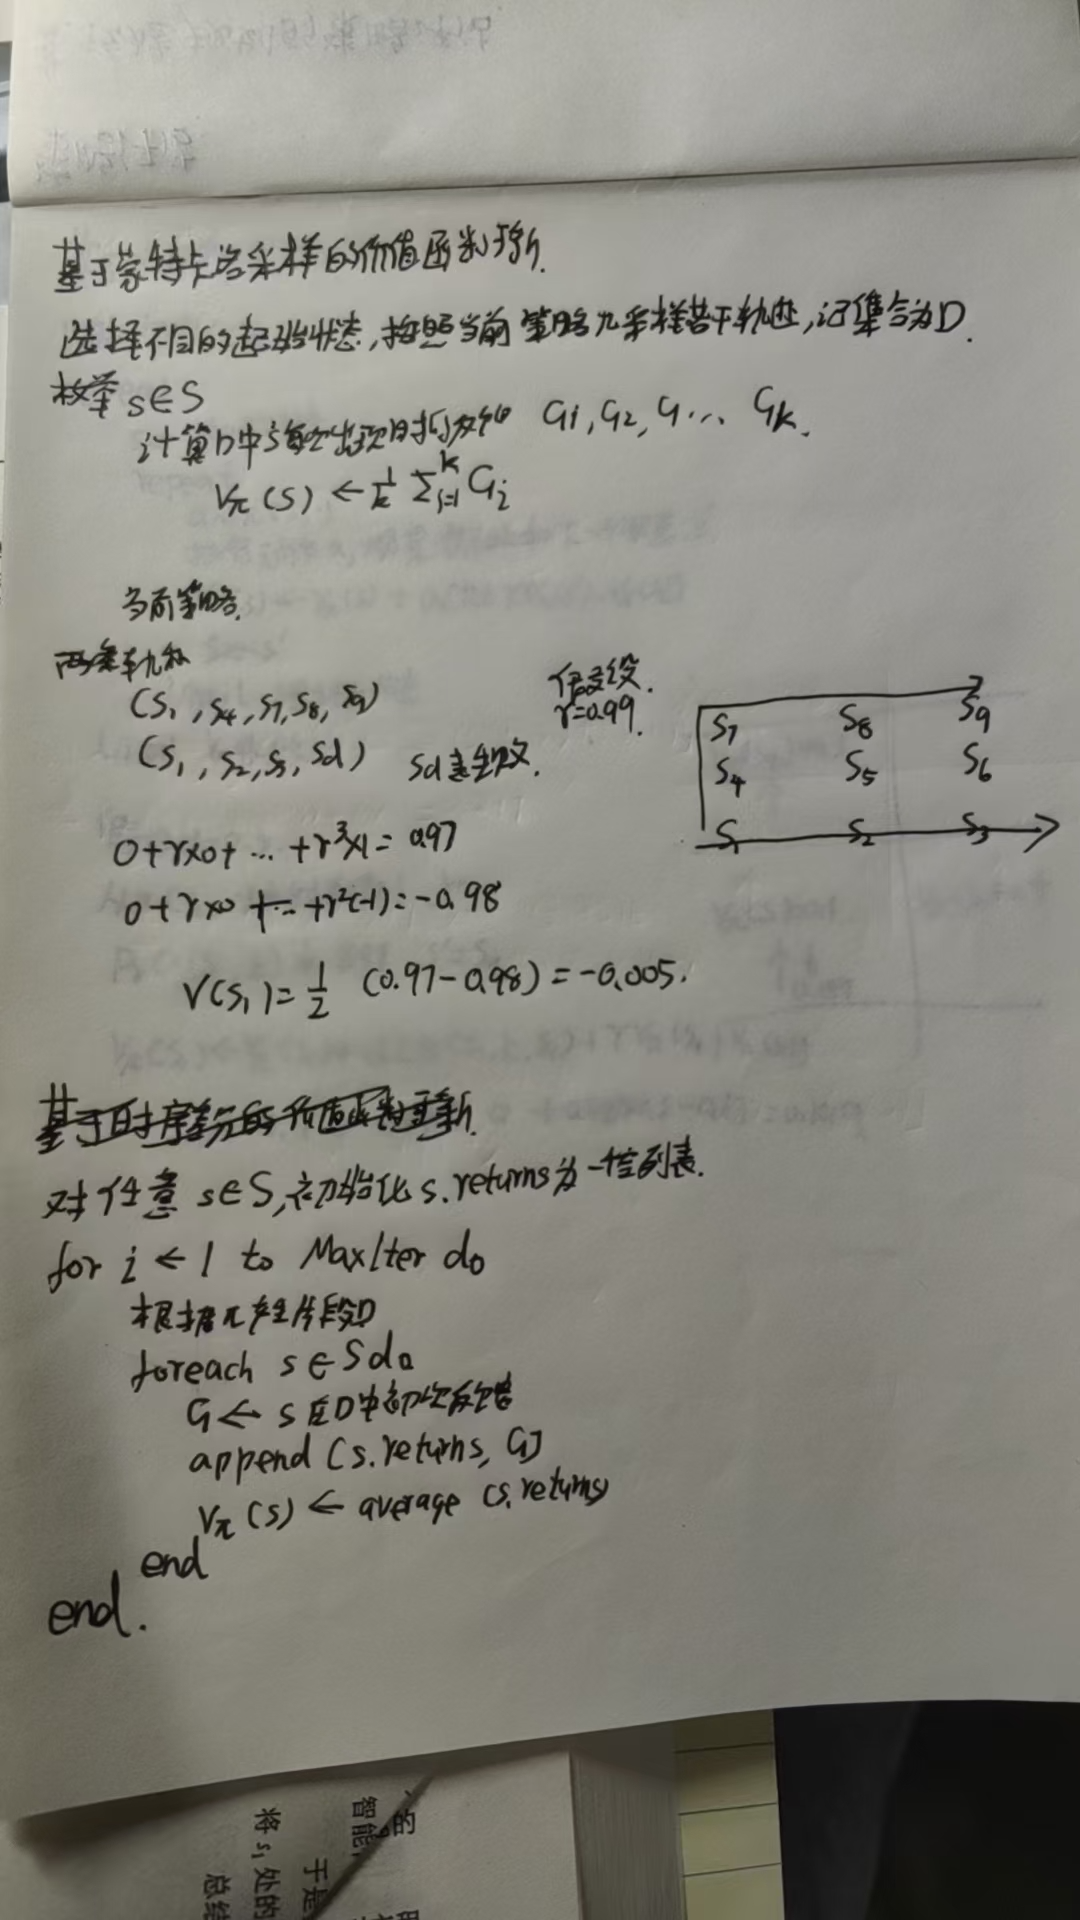 基于蒙特卡洛采样的价值函数更新.
选择不同的起始状态,按照当前策略π采样若干轨迹,记集合为D.
枚举 s∈S
计算D中s每次出现时的反馈 G1, G2, G... Gk.
Vπ(S) ← 1/k Σ^k_{i=1} Gi
当前策略.
两条轨迹
(S1, S4, S7, S8, S9)
(S1, S2, S3, Sd) Sd表失败.
假设.
γ=0.99.
S7 S8 S9
S4 S5 S6
S1 S2 S3
0+γ×0+ ··· +γ³×1= 0.97
0+γ×0 +··· +γ²(-1)= -0.98
V(S1)= 1/2 (0.97-0.98) = -0.005.
基于时序差分的价值函数更新.
对任意 s∈S,初始化 s.returns为一个空列表.
for i ← 1 to MaxIter do
根据π产生片段D
foreach s∈S do
G ← s在D中初次反馈
append (s.returns, G)
Vπ(s) ← average (s.returns)
end
end.
的
智能
于是
将s1处的
总结